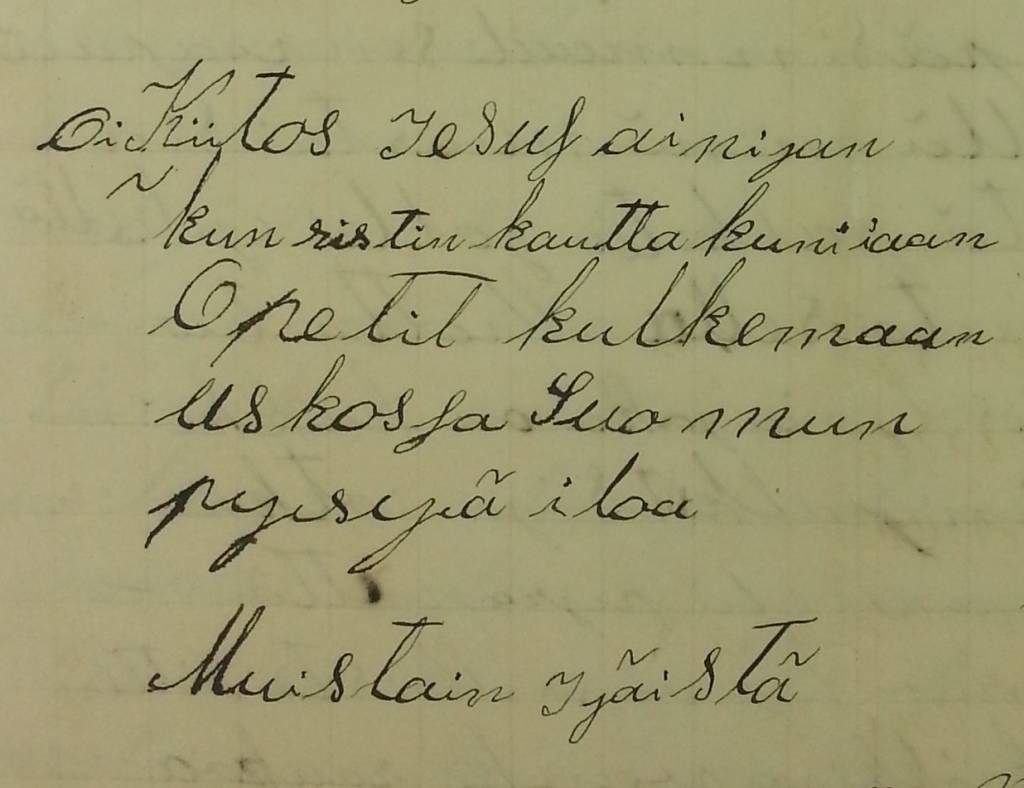 Oi Kiitos Jesus ainijan
kun ristin kautta kuniiaan
Opetit kulkemaan
uskossa Suo mun
pysyä iloa
Muistain Jjäistä